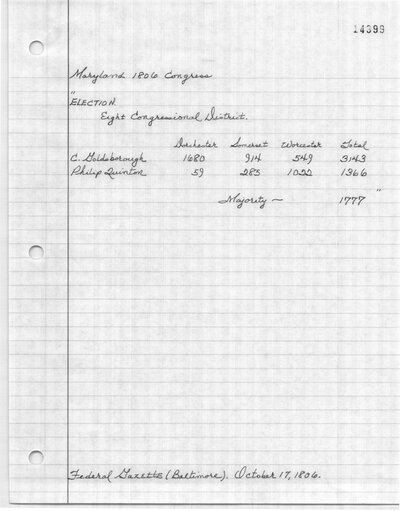 14399
Maryland 1806 Congress
"
ELECTION.
Eight Congressional District.
Dorchester Somerset Worcester Total
C. Goldsborough 1680 914 549 3143
Philip Quinton 59 285 1022 1366
Majority — 1777 "
Federal Gazette (Baltimore). October 17, 1806.